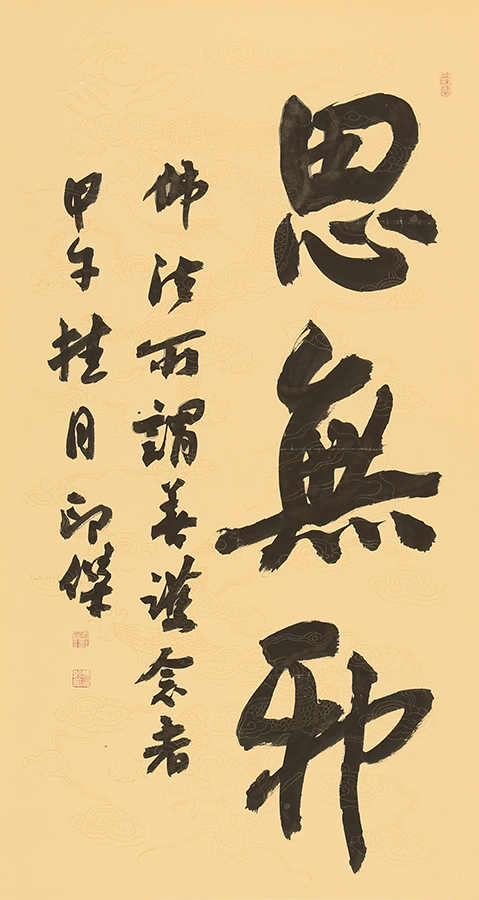 思無邪
佛法所謂善護念者
甲午桂月印傑